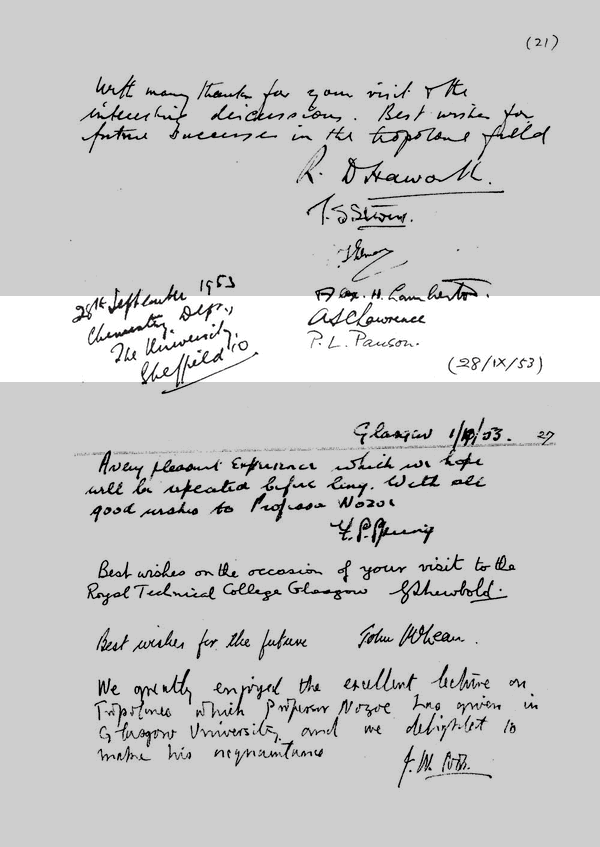 (21)
With many thanks for your visit & the
interesting discussions. Best wishes for
future successes in the tropolone field
R. D Haworth.
T. S. Stevens.
28th September 1953
Chemistry Dept.,
The University,
Sheffield 10
Alex. H. Lamberton.
A S C Lawrence
P. L. Pauson.
(28/IX/53)
Glasgow 1/10/53. 27
A very pleasant Experience which we hope
will be repeated before long. With all
good wishes to Professor Nozoe
F. S. Spring
Best wishes on the occasion of your visit to the
Royal Technical College Glasgow
Best wishes for the future John McLean.
We greatly enjoyed the excellent lecture on
Tropolones which Professor Nozoe has given in
Glasgow University, and are delighted to
make his acquaintance
J. W. Cook.